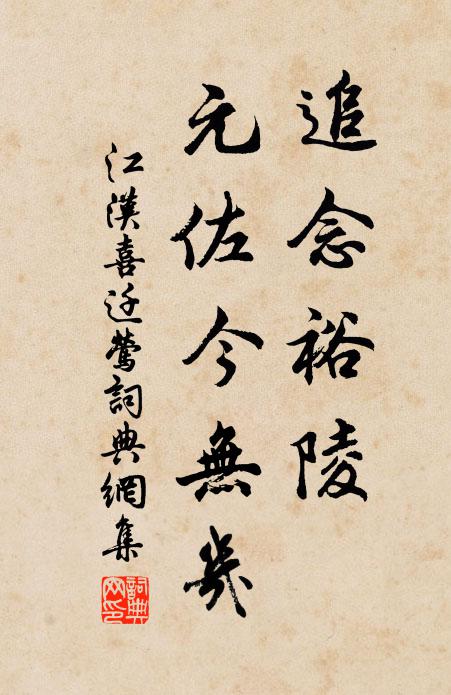 追念裕陵
元佐今無幾
江漢喜迁鶯詞典網集
詞典網印